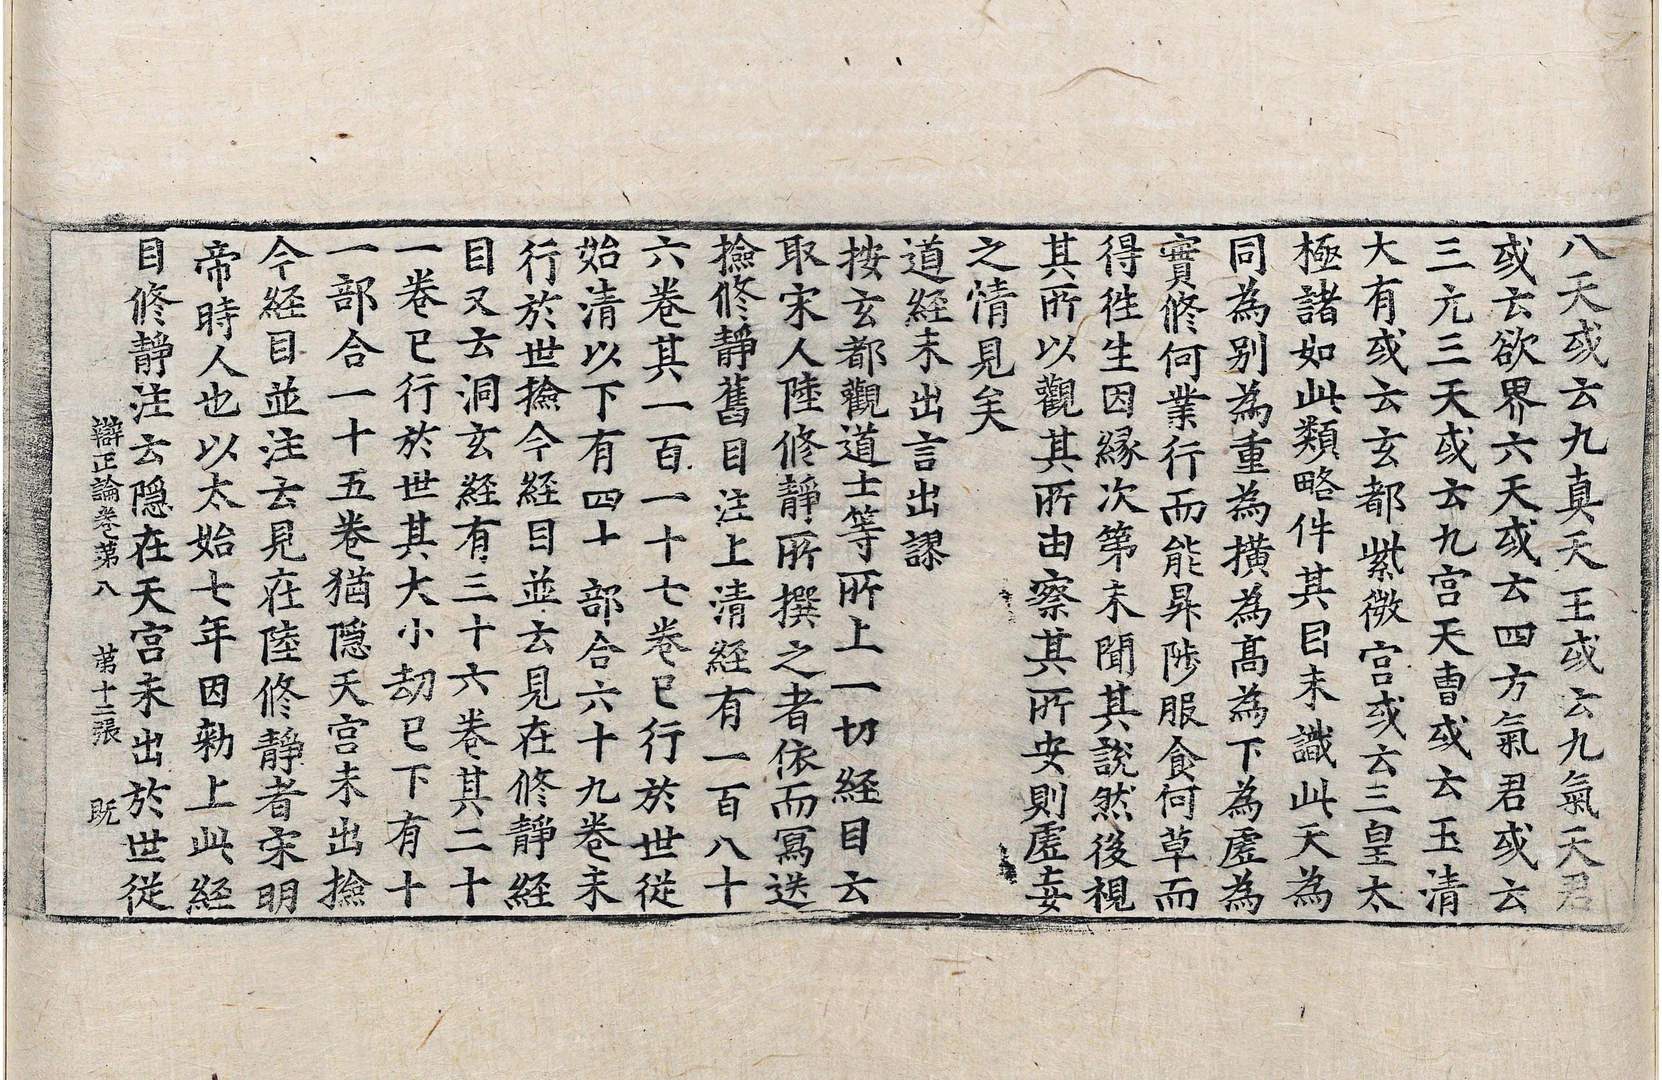 八天或云九真天王或云九氣天君
或云欲界六天或云四方氣君或云
三元三天或云九宮天曹或云玉清
大有或云玄都紫微宮或云三皇太
極諸如此類略件其目未識此天為
同為別為重為橫為髙為下為虛為
實修何業行而能昇陟服食何草而
得徃生因緣次第未聞其說然後視
其所以觀其所由察其所安則虛妄
之情見矣
道經未出言出謬
按玄都觀道士等所上一切經目云
取宋人陸修靜所撰之者依而冩送
撿修靜舊目注上清經有一百八十
六卷其一百一十七卷已行於世從
始清以下有四十部合六十九卷未
行於世撿今經目並云見在修靜經
目又云洞玄經有三十六卷其二十
一卷已行於世其大小劫已下有十
一部合一十五卷猶隱天宮未出撿
今經目並注云見在陸修靜者宋明
帝時人也以太始七年因勑上此經
目修靜注云隱在天宮未出於世從
辯正論卷第八　第十二張　既